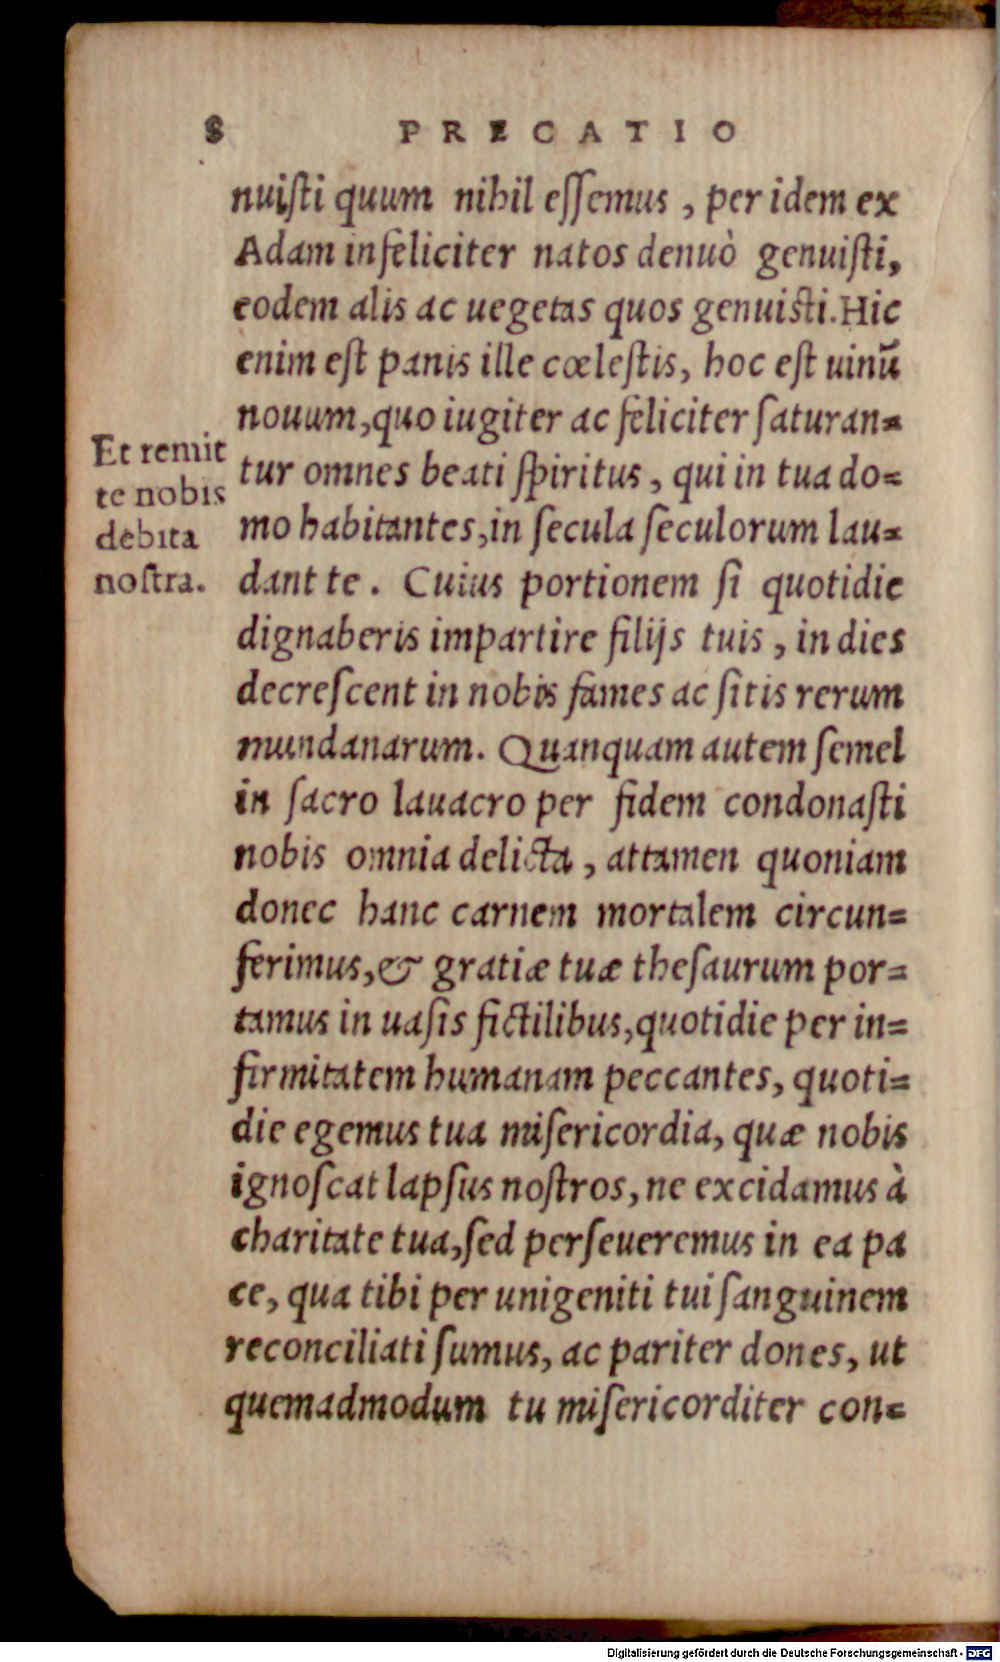 8 PRECATIO
nuisti quum nihil essemus, per idem ex
Adam infeliciter natos denuò genuisti,
eodem alis ac uegetas quos genuisti. Hic
enim est panis ille cœlestis, hoc est uinū
nouum, quo iugiter ac feliciter saturan=
tur omnes beati spiritus, qui in tua do=
mo habitantes, in secula seculorum lau=
dant te. Cuius portionem si quotidie
dignaberis impartire filijs tuis, in dies
decrescent in nobis fames ac sitis rerum
mundanarum. Quanquam autem semel
in sacro lauacro per fidem condonasti
nobis omnia delicta, attamen quoniam
donec hanc carnem mortalem circun=
ferimus, & gratiæ tuæ thesaurum por=
tamus in uasis fictilibus, quotidie per in=
firmitatem humanam peccantes, quoti=
die egemus tua misericordia, quæ nobis
ignoscat lapsus nostros, ne excidamus à
charitate tua, sed perseueremus in ea pa
ce, qua tibi per unigeniti tui sanguinem
reconciliati sumus, ac pariter dones, ut
quemadmodum tu misericorditer con=
Et remit
te nobis
debita
nostra.
Digitalisierung gefördert durch die Deutsche Forschungsgemeinschaft - DFG